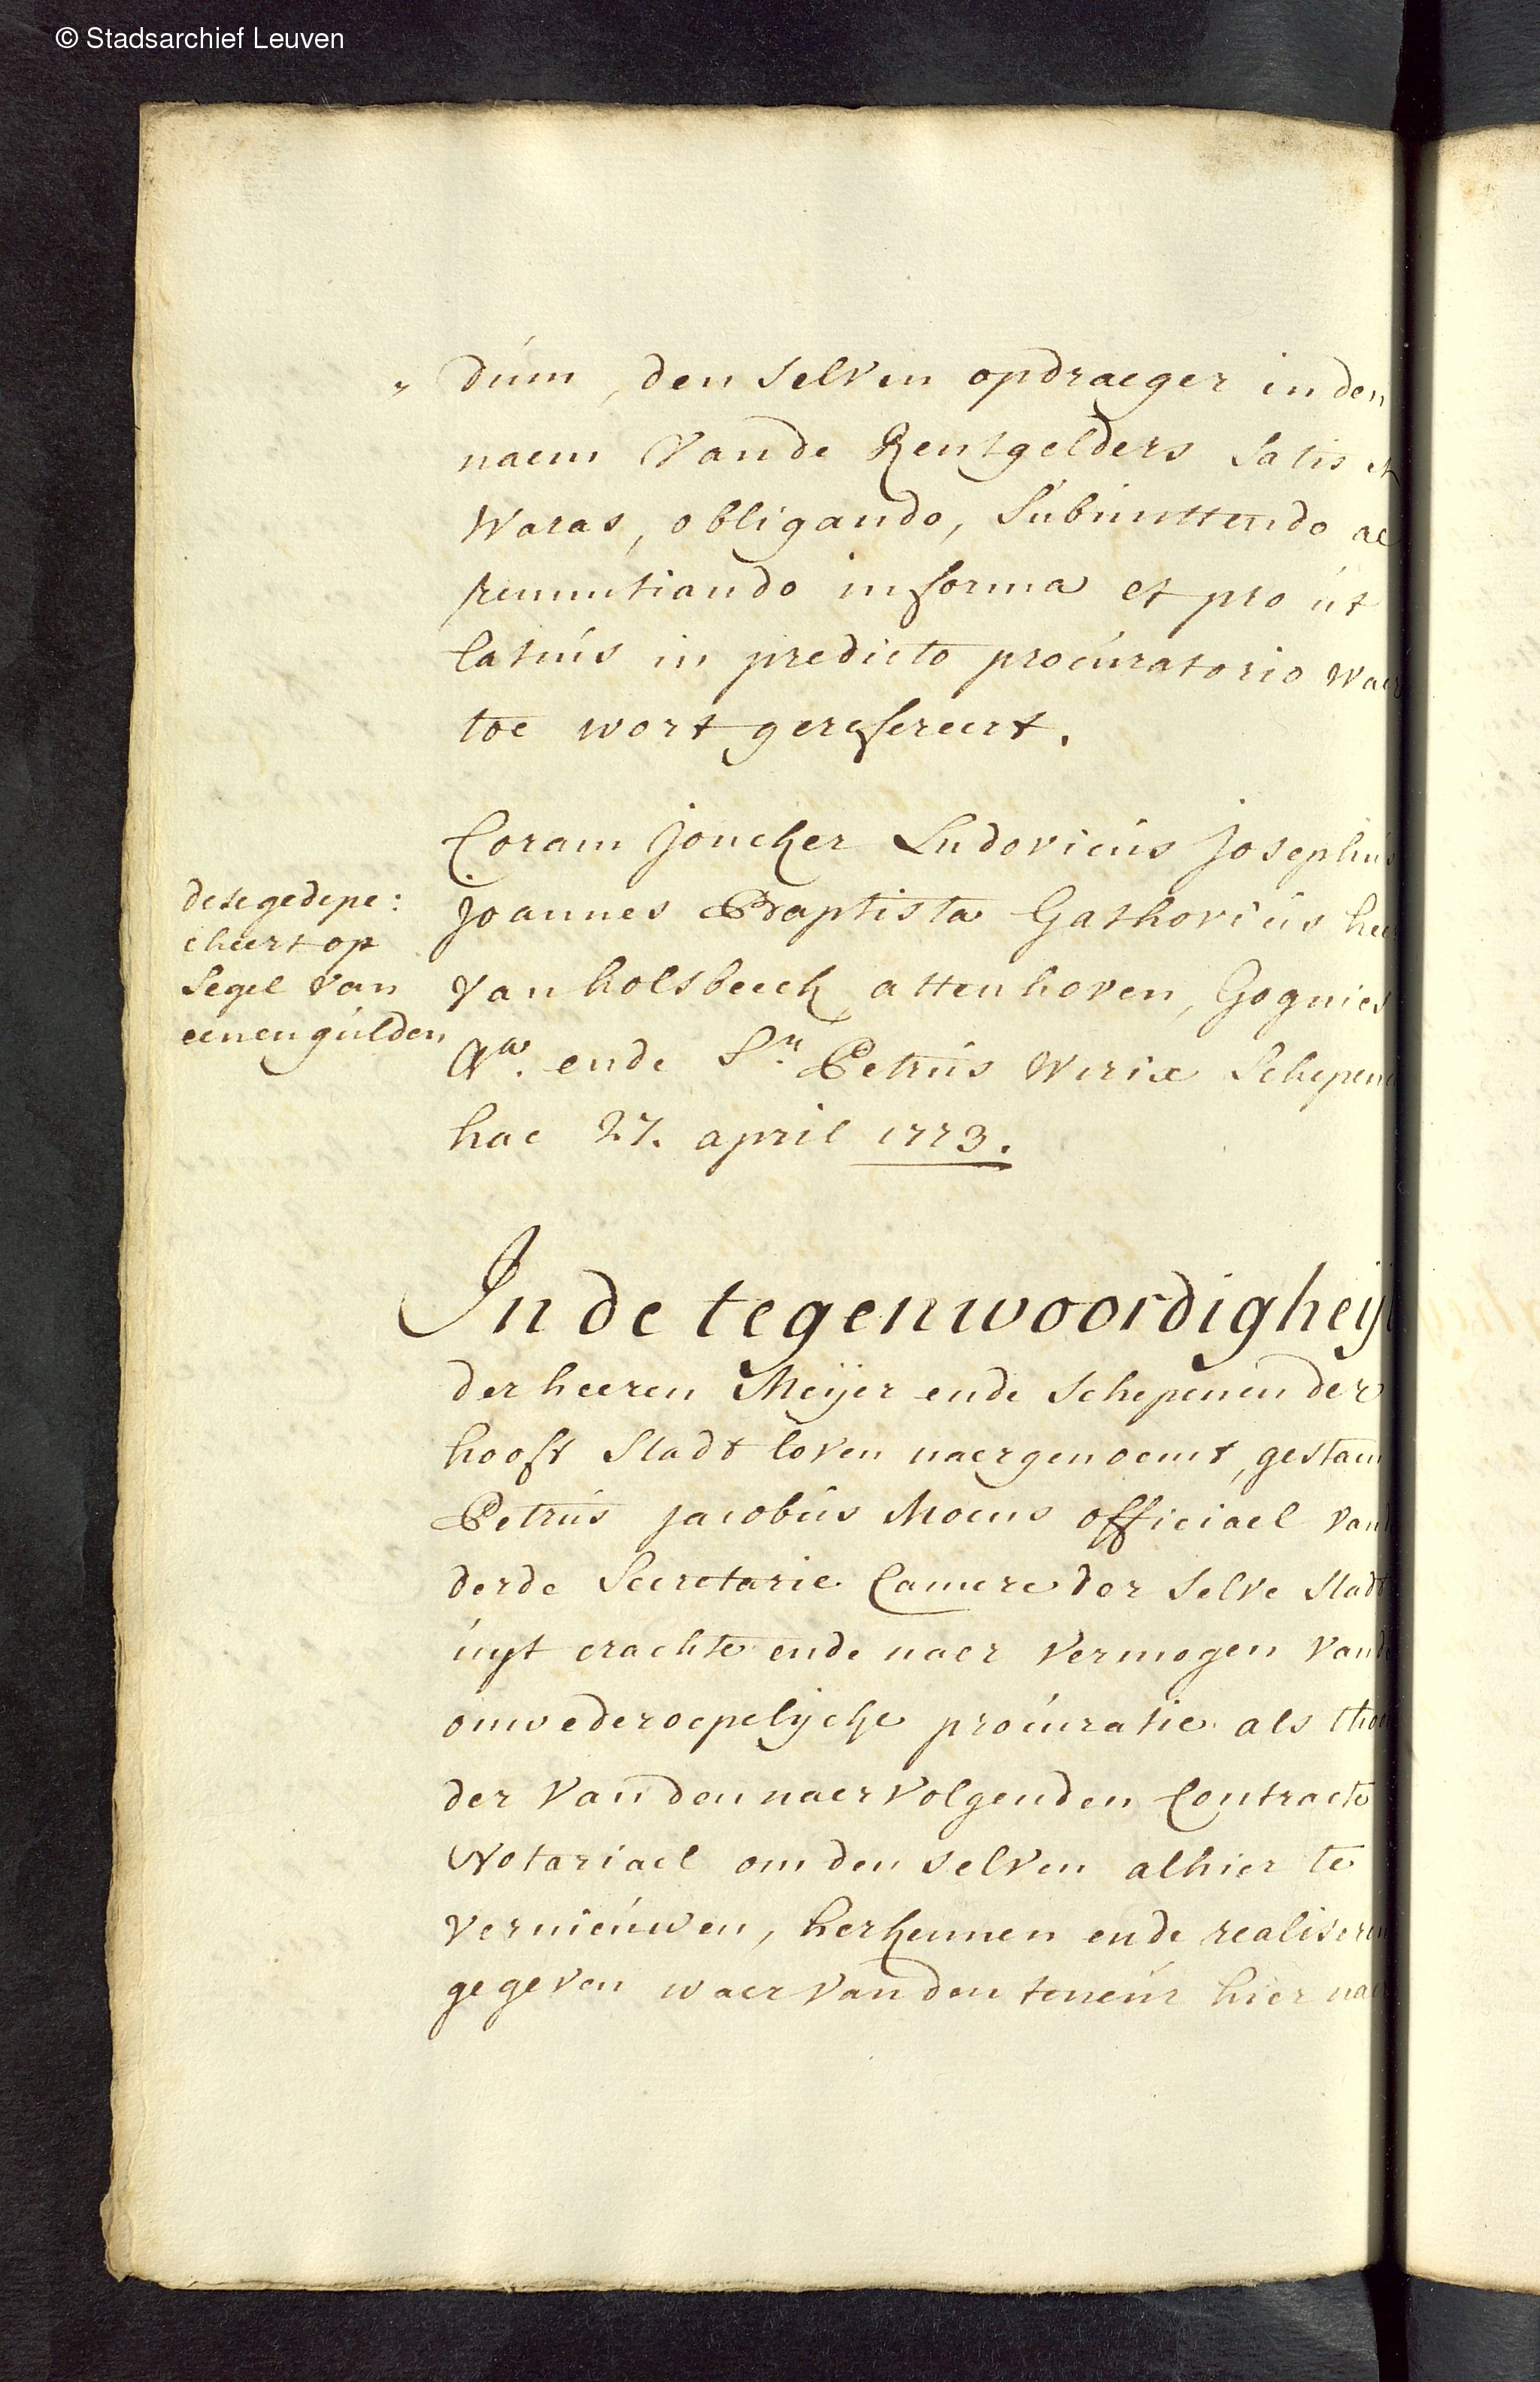 © Stadsarchief Leuven
„ dúm, den selven opdraeger in den
naem vande Rentgelders satis et
Waras, obligando, súbmittendo ac
renuntiando in forma et pro út
latiús in predicto procúratorio waer
toe wort gerefereert.
Coram joncker Ludovicús josephús
joannes Baptista Gathoviús heer
van holsbeeck, attenhoven, Gognies
Ga. ende Sr. Petrús Werix Schepene
hac 27. april 1773.
dese gedepe:
cheert op
segel van
eenen gúlden
In de tegenwoordigheijt
der heeren Meijer ende schepenen der
hooft stadt loven naergenoemt, gestaen
Petrús jacobús Moens officiael vande
derde Secretarie Camere der selve stadt
úyt crachte ende naer vermogen vande
onwederoepelijcke procúratie als thoon
der van den naervolgenden Contracte
Notariael om den selven alhier te
vernieúwen, herkennen ende realiseren
gegeven waer van den teneúr hier naer